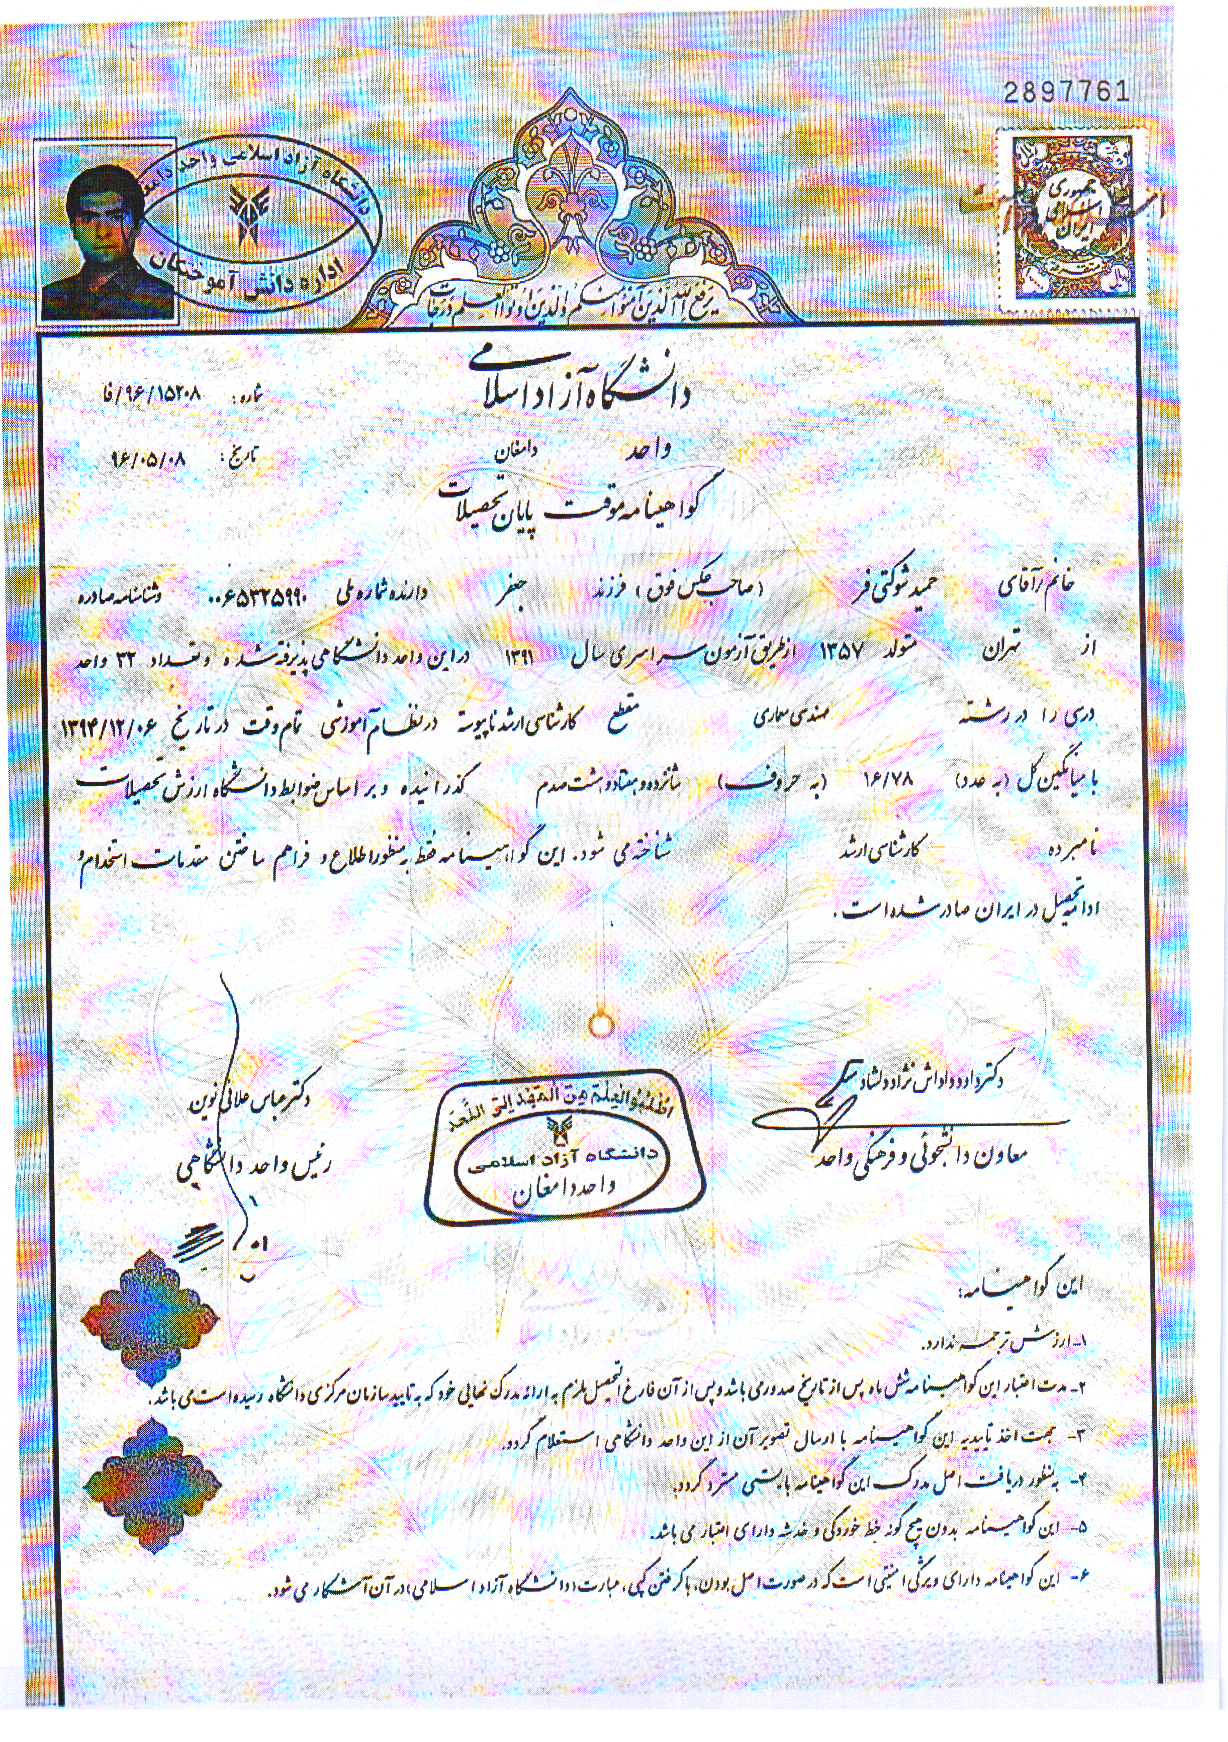 2897761
دانشگاه آزاد اسلامی واحد
اداره دانش آموختگان
جمهوری اسلامی ایران
یرفع الله الذین آمنوا منکم والذین اوتوا العلم درجات
دانشگاه آزاد اسلامی
شماره: ۹۶/۱۵۲۰۸/فا
واحد دامغان
تاریخ: ۹۶/۰۵/۰۸
گواهینامه موقت پایان تحصیلات
خانم/آقای حمید شوکتی فر (صاحب عکس فوق) فرزند جعفر دارنده شماره ملی ۰۰۶۵۳۲۵۹۹۰ وشناسنامه صادره
از تهران متولد ۱۳۵۷ از طریق آزمون سراسری سال ۱۳۹۱ در این واحد دانشگاهی پذیرفته شده و تعداد ۳۲ واحد
درسی را در رشته مهندسی معماری مقطع کارشناسی ارشد ناپیوسته در نظام آموزشی تمام وقت در تاریخ ۱۳۹۴/۱۲/۰۶
با میانگین کل (به عدد) ۱۶/۷۸ (به حروف) شانزده و هفتاد و هشت صدم گذرانیده و بر اساس ضوابط دانشگاه ارزش تحصیلات
نامبرده کارشناسی ارشد شناخته می شود. این گواهینامه فقط به منظور اطلاع و فراهم ساختن مقدمات استخدام و
ادامه تحصیل در ایران صادر شده است.
دکتر داود داداش نژاد دلشاد
معاون دانشجوئی و فرهنگی واحد
اطلبوا العلم من المهد الی اللحد
دانشگاه آزاد اسلامی
واحد دامغان
دکتر عباس علائی نوین
رئیس واحد دانشگاهی
این گواهینامه:
۱- ارزش ترجمه ندارد.
۲- مدت اعتبار این گواهینامه شش ماه پس از تاریخ صدور می باشد و پس از آن فارغ التحصیل ملزم به ارائه مدرک نهایی خود که به تایید سازمان مرکزی دانشگاه رسیده است می باشد.
۳- جهت اخذ تاییدیه این گواهینامه با ارسال تصویر آن از این واحد دانشگاهی استعلام گردد.
۴- به منظور دریافت اصل مدرک این گواهینامه بایستی مسترد گردد.
۵- این گواهینامه بدون هیچ گونه خط خوردگی و خدشه دارای اعتبار می باشد.
۶- این گواهینامه دارای ویژگی امنیتی است که در صورت اصل بودن، با گرفتن کپی، عبارت (دانشگاه آزاد اسلامی) در آن آشکار می شود.